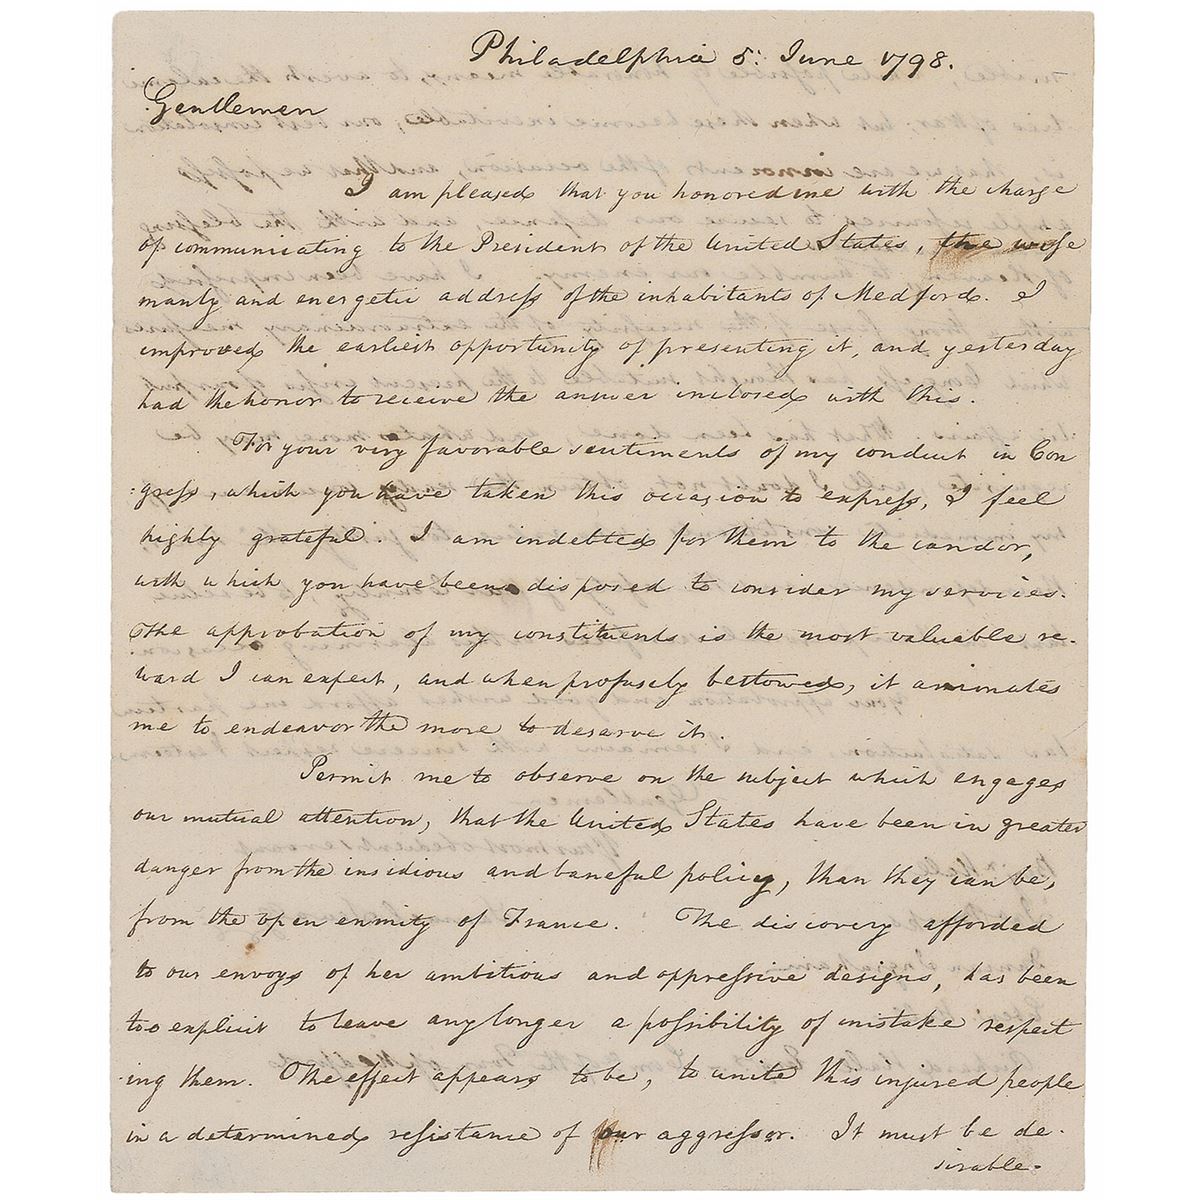 Philadelphia 5: June 1798.
Gentlemen
I am pleased that you honored me with the charge
of communicating to the President of the United States, the wise
manly and energetic address of the inhabitants of Medford. I
improved the earliest opportunity of presenting it, and yesterday
had the honor to receive the answer inclosed with this.
For your very favorable sentiments of my conduct in Con
:gress, which you have taken this occasion to express, I feel
highly grateful. I am indebted for them to the candor,
with which you have been disposed to consider my services.
The approbation of my constituents is the most valuable re-
ward I can expect, and when profusely bestowed, it animates
me to endeavor the more to deserve it.
Permit me to observe on the subject which engages
our mutual attention, that the United States have been in greater
danger from the insidious and baneful policy, than they can be,
from the open enmity of France. The discovery afforded
to our envoys of her ambitious and oppressive designs, has been
too explicit to leave any longer a possibility of mistake respect
-ing them. The effect appears to be, to unite this injured people
in a determined resistance of our aggressor. It must be de-
sirable-